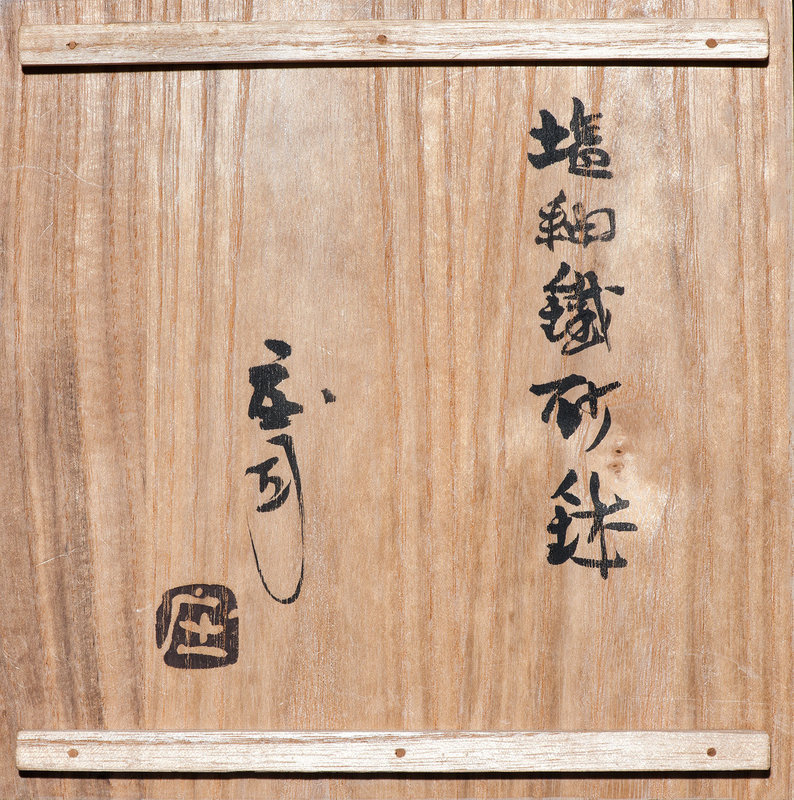 塩釉鐵砂鉢
庄司
庄